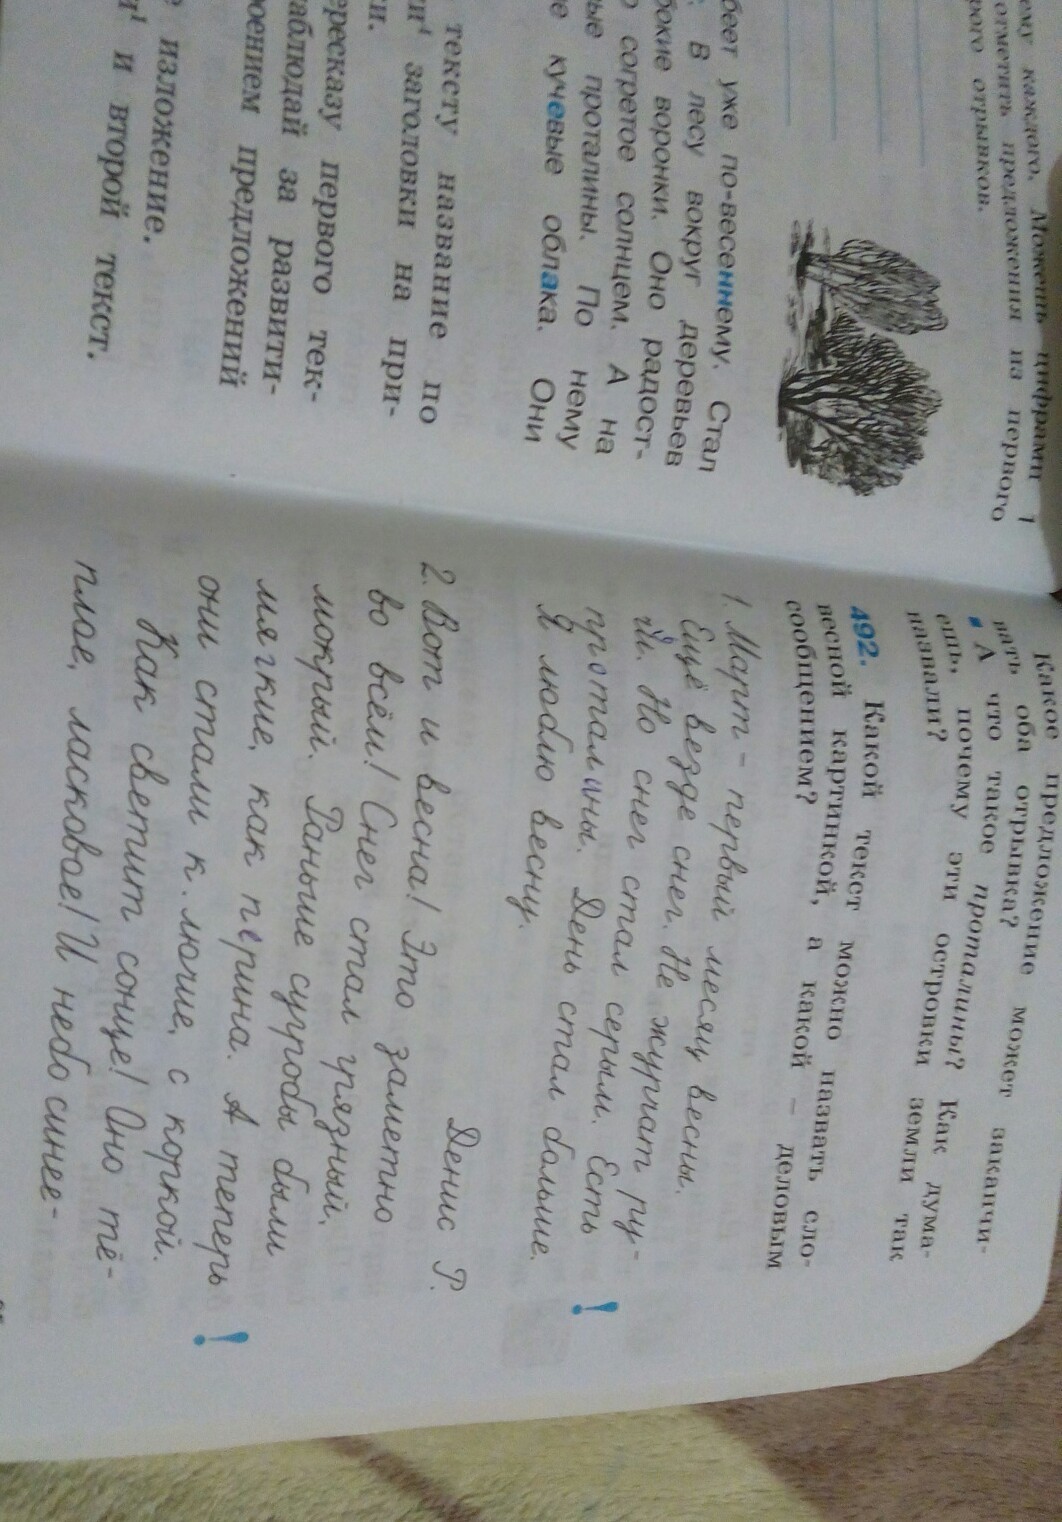 ему каждого. Можешь цифрами 1
отметить предложения из первого
отрывков.
беет уже по-весеннему. Стал
В лесу вокруг деревьев
бокие воронки. Оно радост-
согретое солнцем. А на
проталины. По нему
кучевые облака. Они
тексту название по
заголовки на при-
ересказу первого тек-
аблюдай за развити-
роением предложений
изложение.
и второй текст.
Какое предложение может заканчи-
вать оба отрывка?
А что такое проталины? Как дума-
ешь, почему эти островки земли так
назвали?
492. Какой текст можно назвать сло-
весной картинкой, а какой – деловым
сообщением?
1. Март – первый месяц весны.
Ещё везде снег. Не журчат ру-
Но снег стал серым. Есть
проталины. День стал больше.
Я люблю весну.
Денис Р.
2. Вот и весна! Это заметно
во всём! Снег стал грязный,
мокрый. Раньше сугробы были
мягкие, как перина. А теперь
они стали к.лючие, с коркой.
Как светит сонце! Оно тё-
плое, ласковое! И небо синее-